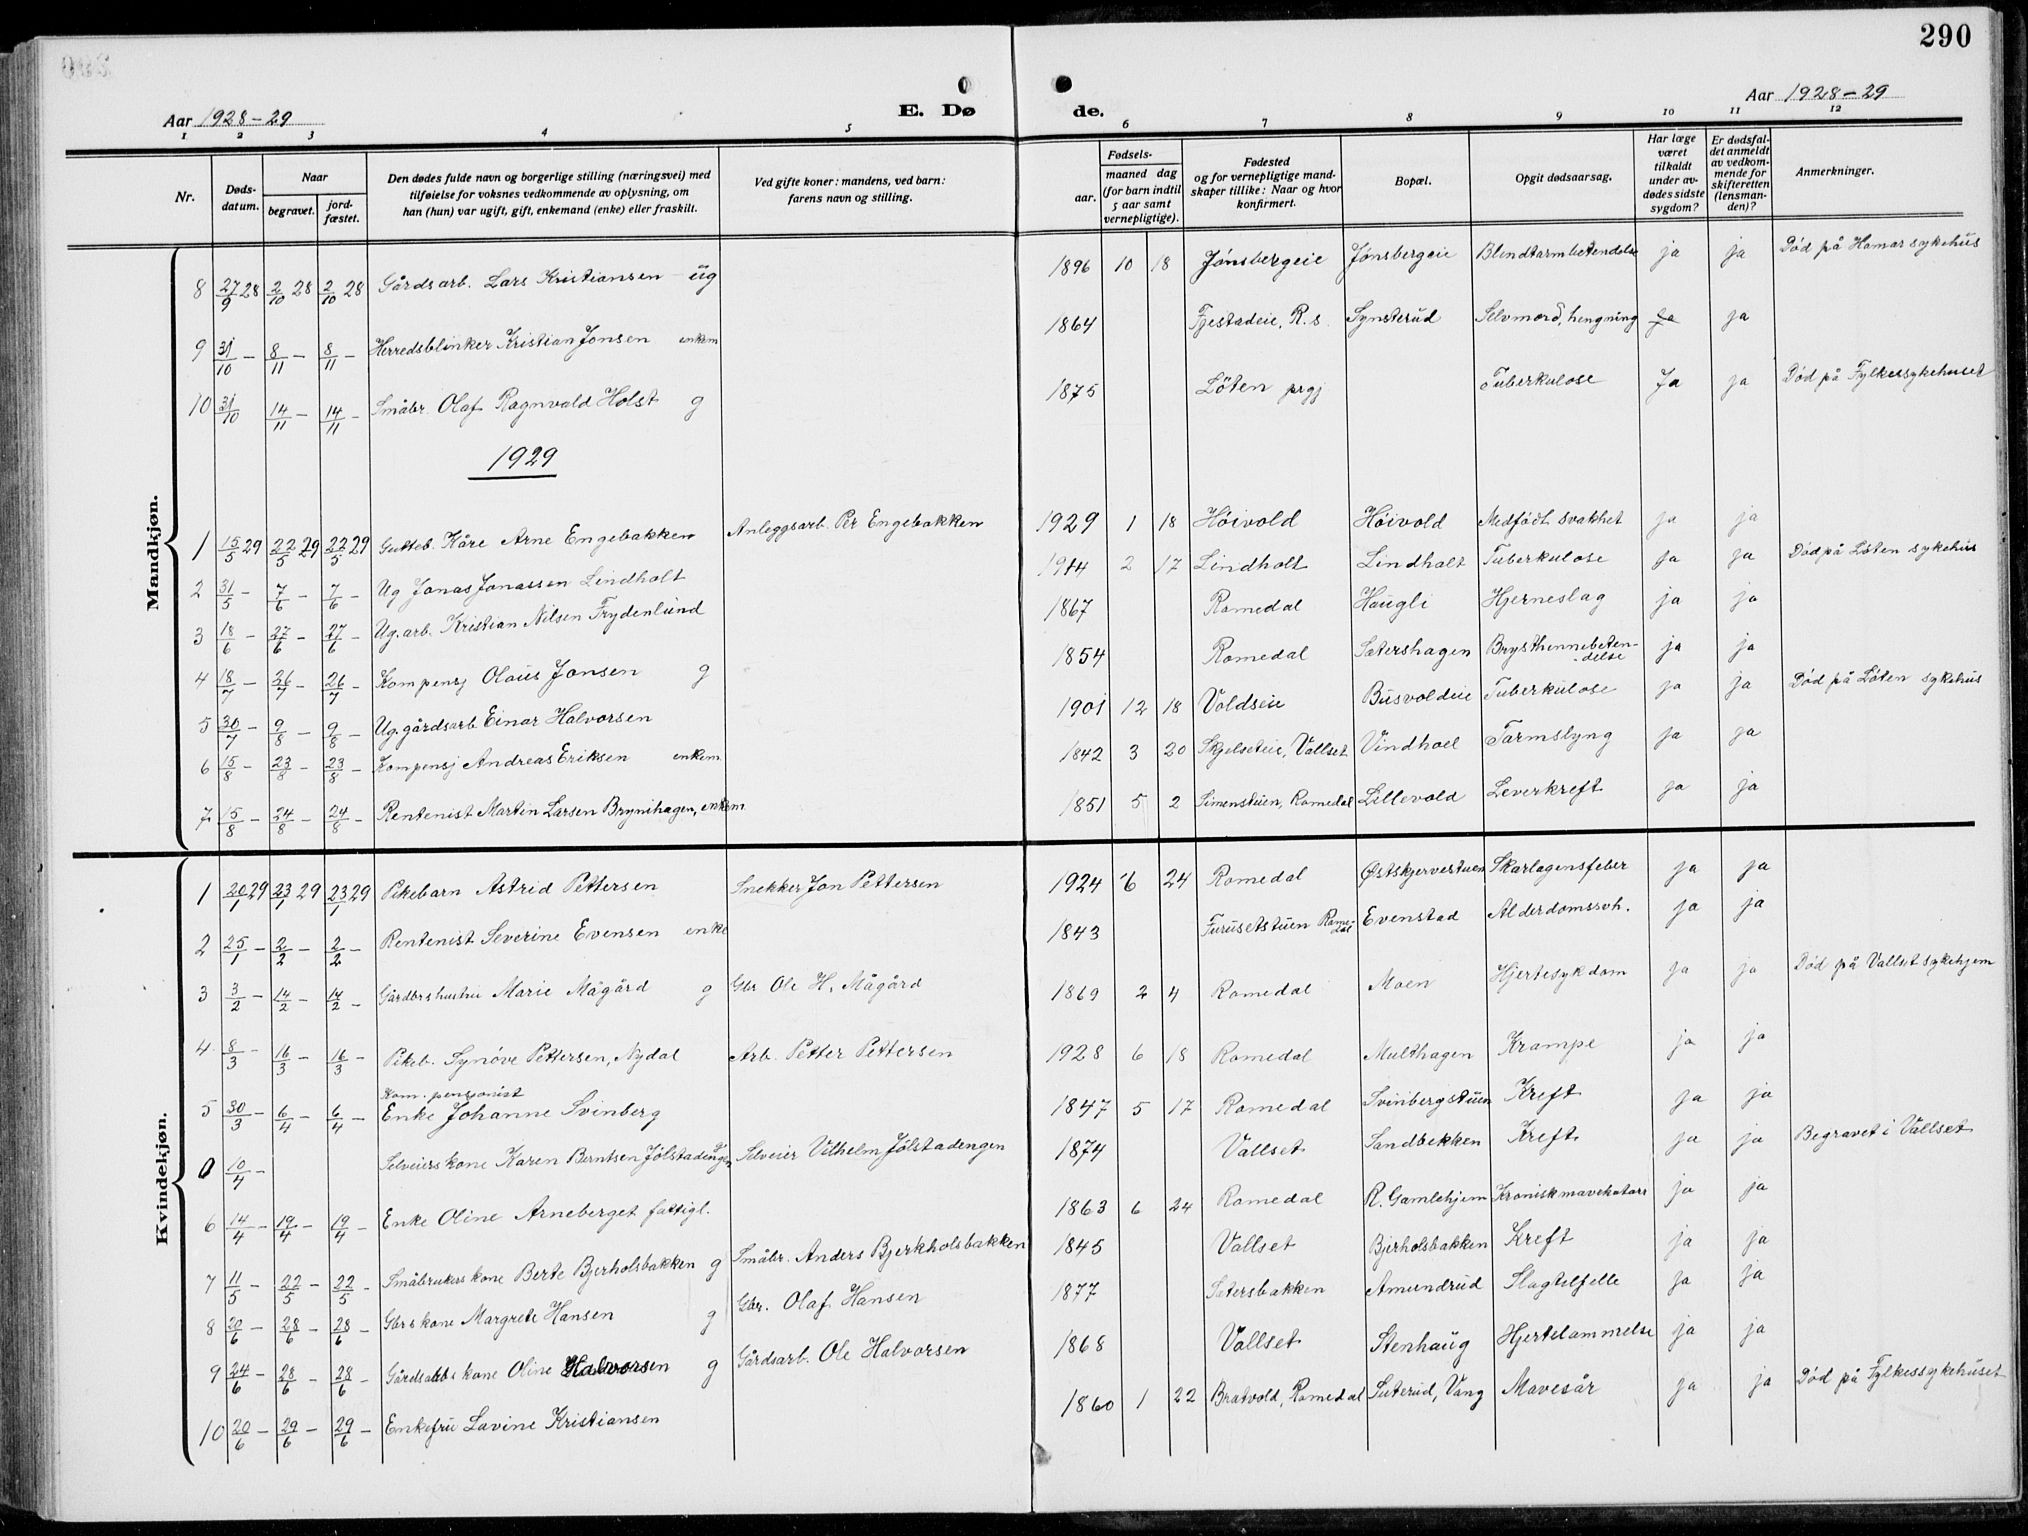 290
Aar 1928-29
E. Dø
de.
Aar 1928-29
1 2 3 4 5 6 7 8 9 10 11 12
Nr.
Døds-
datum.
Naar
begravet.
jord-
fæstet.
Den dødes fulde navn og borgerlige stilling (næringsvei) med
tilføielse for voksnes vedkommende av oplysning, om
han (hun) var ugift, gift, enkemand (enke) eller fraskilt.
Ved gifte koner: mandens, ved barn:
farens navn og stilling.
Fødsels-
aar.
maaned dag
(for barn indtil
5 aar samt
vernepligtige).
Fødested
og for vernepligtige mand-
skaper tillike: Naar og hvor
konfirmert.
Bopæl.
Opgit dødsaarsag.
Har læge
været
tilkaldt
under av-
dødes sidste
sygdom?
Er dødsfal-
det anmeldt
av vedkom-
mende for
skifteretten
(lensman-
den)?
Anmerkninger.
Mandkjøn.
8 27/9 28 2/10 28 2/10 28 Gårdsarb. Lars Kristiansen ug 1896 10 18 Jønsbergeie Jønsbergeie Blindtarmbetendelse ja ja Død på Hamar sykehus
9 31/10 - 8/11 - 8/11 - Herredsblinker Kristian Jonsen enkem 1864 Fjestadeie, R. s. Synsterud Selvmord, hengning ja ja
10 31/10 14/11 - 14/11 - Småbr. Olaf Ragnvald Holst g 1875 Løten prgj Tuberkulose Ja ja Død på Fylkessykehuset
1929
1 15/5 29 22/5 29 22/5 29 Gutteb. Kåre Arne Engebakken Anleggsarb. Per Engebakken 1929 1 18 Høivold Høivold Medfødt svakhet ja ja
2 31/5 - 7/6 - 7/6 - Ug Jonas Jonassen Lindholt 1914 2 17 Lindholt Lindholt Tuberkulose ja ja Død på Løten sykehus
3 18/6 - 27/6 - 27/6 - Ug. arb. Kristian Nilsen Frydenlund 1867 Romedal Haugli Hjerneslag ja ja
4 18/7 - 26/7 - 26/7 - Kompensj Olaus Jonsen g 1854 Romedal Sætershagen Brysthinnebeten-delse ja ja
5 30/7 - 9/8 - 9/8 - Ug. gårdsarb Einar Halvorsen 1901 12 18 Voldseie Busvoldeie Tuberkulose ja ja Død på Løten sykehus
6 15/8 - 23/8 - 23/8 - Kompensj Andreas Eriksen enkem 1842 3 20 Skjelseteie, Vallset Vindhoel Tarmslyng ja ja
7 15/8 - 24/8 - 24/8 - Rentenist Martin Larsen Brynihagen, enkem 1851 5 2 Simenstuen, Romedal Lillevold Leverkreft ja ja
Kvindekjøn.
1 20/1 29 23/1 29 23/1 29 Pikebarn Astrid Pettersen Snekker Jon Pettersen 1924 6 24 Romedal Østskjervertuen Skarlagensfeber ja ja
2 25/1 - 2/2 - 2/2 - Rentenist Severine Evensen enke 1843 Furusetstuen Romedal Evenstad Alderdomssvh. ja ja
3 3/2 - 14/2 - 14/2 - Gårdbrshustru Marie Mågård g Gbr Ole H. Mågård 1869 2 4 Romedal Moen Hjertesykdom ja ja Død på Vallset sykehjem
4 8/3 - 16/3 - 16/3 - Pikeb. Synøve Pettersen, Nydal Arb. Petter Pettersen 1928 6 18 Romedal Multhagen Krampe ja ja
Kom. pensionist
5 30/3 - 6/4 - 6/4 - Enke Johanne Svinberg 1847 5 17 Romedal Svinbergstuen Kreft ja ja
0 10/4 - Selveierskone Karen Berntsen Jølstadengen Selveier Vilhelm Jølstadengen 1874 Vallset Sandbekken Kreft ja ja Begravet i Vallset
6 14/4 - 19/4 - 19/4 - Enke Oline Arneberget fattigl. 1863 6 24 Romedal R. Gamlehjem Kronisk mavekatarr ja ja
7 11/5 - 22/5 - 22/5 - Småbrukers kone Berte Bjerholsbakken g Småbr. Anders Bjerkholsbakken 1845 Vallset Bjerholsbakken Kreft ja ja
8 20/6 - 28/6 - 28/6 - Gbrs kone Margrete Hansen g Gbr. Olaf Hansen 1877 Sætersbakken Amundrud Slagtilfelle ja ja
9 24/6 - 28/6 - 28/6 - Gårdsarbs kone Oline Halvorsen g Gårdsarb. Ole Halvorsen 1868 Vallset Stenhaug Hjertelammelse ja ja
10 20/6 - 29/6 - 29/6 - Enkefru Lovine Kristiansen 1860 1 22 Bratvold, Romedal Suterud, Vang Mavesår ja ja Død på Fylkessykehuset